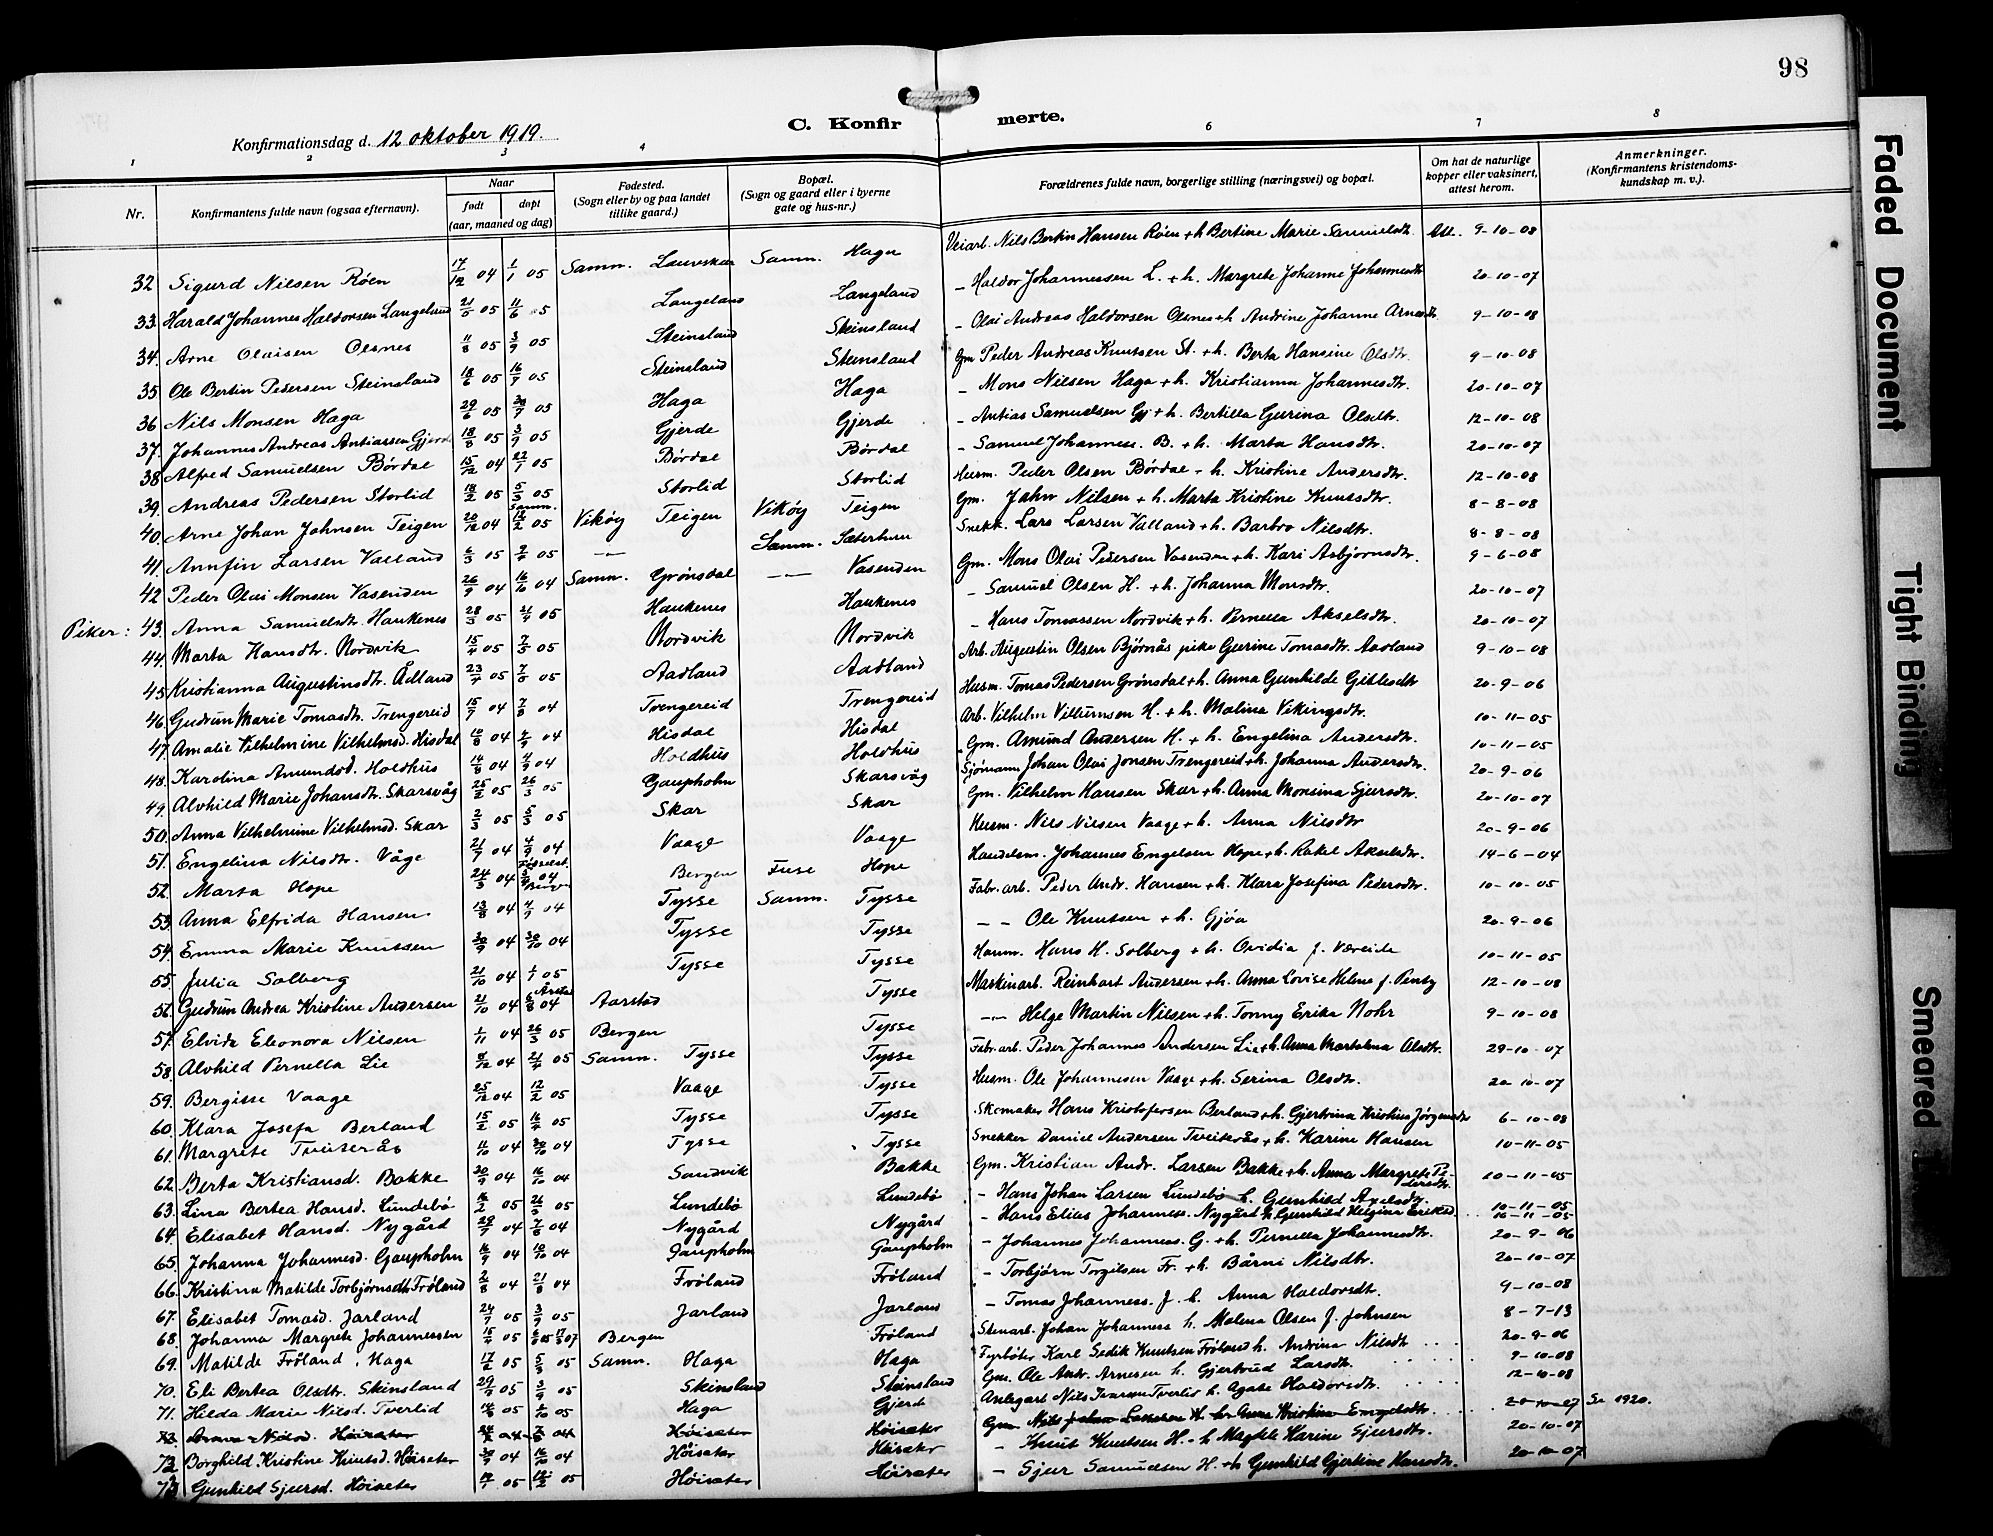 98
C. Konfirmerte.
Konfirmationsdag d. 12 oktober 1919.
1 2 3 4 6 7 8
Nr. Konfirmantens fulde navn (ogsaa efternavn). Naar født døpt (aar, maaned og dag) Fødested. (Sogn eller by og paa landet tillike gaard.) Bopæl. (Sogn og gaard eller i byerne gate og hus-nr.) Forældrenes fulde navn, borgerlige stilling (næringsvei) og bopæl. Om hat de naturlige kopper eller vaksinert, attest herom. Anmerkninger. (Konfirmantens kristendomskundskap m. v.).
32 Sigurd Nilsen Røen 17/12 04 1/1 05 Samn. Laurskar Samn. Haga Veiarb. Nils Bertin Hansen Røen + h Bertine Marie Samuelsdt. Att. 9-10-08
33. Harald Johannes Haldorsen Langeland 21/5 05 11/6 05 Langeland Langeland – Haldor Johannessen L. + h. Margrete Johanne Johannesdt 20-10-07
34. Arne Olaisen Olsnes 11/8 05 3/9 05 Steinsland Steinsland – Olai Andreas Haldorsen Olsnes + h Andrine Johanne Arnesdt. 9-10-08
35 Ole Bertin Pedersen Steinsland 18/6 05 16/7 05 Steinsland Steinsland Gm Peder Andreas Knutsen St. + h. Berta Hansine Olsdtr. 9-10-08
36 Nils Monsen Haga 29/6 05 30/7 05 Haga Haga – Mons Nilsen Haga + h. Kristianna Johannesdtr. 20-10-07
37. Johannes Andreas Antiassen Gjerde 18/8 05 3/9 05 Gjerde Gjerde – Antias Samuelsen Gj + h. Bertilla Gurina Olsdtr. 12-10-08
38 Alfred Samuelsen Børdal 15/12 04 22/1 05 Børdal Børdal – Samuel Johanness. B. + h. Marta Hansdtr. 20-10-07
39. Andreas Pedersen Storlid 18/2 05 5/3 05 Storlid Storlid Husm. Peder Olsen Børdal – h. Kristine Andersdtr. 12-10-08
40. Arne Johan Jahnsen Teigen 20/12 04 Samn. 12/2 05 Vikøy Teigen Vikøy Teigen Gm. Jahn Nilsen + h. Marta Kristine Knutsdtr. 8-8-08
41. Annfin Larsen Valland 6/3 05 05 –„– Samn. Sæterhun Snekk. Lars Larsen Valland + h. Barbro Nilsdtr. 8-8-08
42 Peder Olai Monsen Vasenden 26/9 04 16/10 04 Samn. Grønsdal –„– Vasenden Gm. Mons Olai Pedersen Vasenden + h. Kari Asbjørnsdtr. 9-6-08
Piker: 43. Anna Samuelsdt. Haukenes 28/3 05 05 Haukenes Haukenes – Samuel Olsen H. + h. Johanna Monsdtr. 20-10-07
44. Marta Hansdtr. Nordvik 15/4 05 7/5 05 Nordvik Nordvik – Hans Tomassen Nordvik + h. Pernella Akselsdtr. 20-10-07
45 Kristianna Augustinsdtr. Ådland 23/4 05 7/5 05 Aadland Aadland Arb. Augustin Olsen Bjørnås pike Gurine Tomasdtr. Aadland 9-10-08
46. Gudrun Marie Tomasdtr. Trengereid 15/7 04 7/8 04 Trengereid Trengereid Husm. Tomas Pedersen Grønsdal + h. Anna Gunhilde Gitlesdtr 20-9-06
47. Amalie Vilhelmine Vilhelmsd. Hisdal 10/8 04 2/9 04 Hisdal Hisdal Arb. Vilhelm Villumsen H. + h. Malina Vikingsdtr. 10-11-05
48. Karolina Amundsd. Holdhus 14/8 04 4/9 04 Holdhus Holdhus Gm. Amund Andersen H. + h. Engelina Andersdtr. 10-11-05
49. Alvhild Marie Johansdtr. Skarsvåg 25/2 05 26/3 05 Gaupholm Skarsvåg Sjømann Johan Olai Jonsen Trengereid + h. Johanna Andersdtr. 20-9-06
50. Anna Vilhelmine Vilhelmsd. Skar 2/3 05 5/3 05 Skar Skar Gm. Vilhelm Hansen Skar + h. Anna Monsina Sjursdtr. 20-10-07
51. Engelina Nilsdtr. Våge 21/7 04 4/9 04 Vaage Vaage Husm. Nils Nilsen Vaage + h. Anna Nilsdtr 20-9-06
52. Marta Hope 24/3 04 04 Bergen Fuse Hope Handelsm. Johannes Engelsen Hope + h. Rakel Akselsdtr. 14-6-04
53. Anna Elfrida Hansen 13/8 04 4/9 04 Tysse Samn. Tysse Fabr. arb. Peder Andr. Hansen + h. Klara Josefina Pedersdtr. 10-10-05
54. Emma Marie Knutsen 30/9 04 30/10 04 Tysse Tysse – – Ole Knutsen + h. Gjøa 20-9-06
55. Julia Solberg 21/10 04 1/1 05 Tysse Tysse Hanm. Hans H. Solberg + h. Ovidia f. Væreide 10-11-05
56. Gudrun Andrea Kristine Andersen 21/10 04 Årstad 04 Aarstad Tysse Maskinarb. Reinhart Andersen + h. Anna Lovise Helene f. Penty 12-10-08
57. Elvida Eleonora Nilsen 1/11 04 26/3 05 Bergen Tysse –„– Helge Martin Nilsen + h. Tonny Erika Nohr 9-10-08
58. Alvhild Pernella Lie 8/12 04 05 Samn. Tysse Tysse Fabr. arb. Peder Johannes Andersen Lie + h. Anna Martalena Olsdtr. 29-10-07
59. Bergitte Vaage 25/12 04 12/2 05 Vaage Tysse Husm. Ole Johannesen Vaage + h. Serina Olsdtr. 20-10-07
60. Klara Josefa Berland 15/2 05 16/4 05 Tysse Tysse Skomaker Hans Kristofersen Berland + h. Gjertrina Kristine Jørgensdtr 6-10-08
61. Margrete Tveiterås 11/10 04 30/10 04 Tysse Tysse Snekker Daniel Andersen Tveiterås + h. Karine Hansen 10-11-05
62. Berta Kristiansd. Bakke 20/9 04 16/10 04 Sandvik Bakke Gm. Kristian Andr. Larsen Bakke + h. Anna Margrete Pedersdtr. 10-11-05
63. Lina Bertea Hansd. Lundebø 05 05 Lundebø Lundebø – Hans Johan Larsen Lundebø h. Gunhild Axelsdtr. 10-11-05
64. Elisabet Hansd. Nygård 04 7/8 04 Nygård Nygård – Hans Elias Johanness. Nygård h Gunhild Helgina Eriksd. 10-11-05
65. Johanna Johannesd. Gaupholm 04 04 Gaupholm Gaupholm – Johannes Johanness. G. + h. Pernella Johannesdtr. 20-9-06
66. Kristina Matilde Torbjørnsdtr Frøland 2/8 04 21/8 04 Frøland Frøland – Torbjørn Torgilsen Fr. + h. Bårni Nilsdtr. 20-10-07
67. Elisabet Tomasd. Jarland 24/7 05 3/9 05 Jarland Jarland – Tomas Johanness. J. h. Anna Haldorsdtr. 9-10-08
68. Johanna Margrete Johannessen 05 Bergen Frøland Stenarb. Johan Johanness h. Malena Olsen f. Johnsen 8-7-13
69. Matilde Frøland, Haga 17/2 05 5/3 05 Samn. Haga Haga Fyrbøter Karl Sedik Knutsen Frøland h. Andrina Nilsdtr . . . . 20-9-06
70. Eli Bertea Olsdtr. Steinsland 05 3/9 05 Steinsland Steinsland Gm. Ole Andr. Arnesen h. Gjertrud Larsdtr. . . . . . 9-10-08
71. Hilda Marie Nilsd. Tverlid 05 05 Haga Gjerde Anlegarb. Nils Ivarson Tverlid h. Agate Haldorsdtr. . . . . . 12-10-08
04 04 Høisæter Høisæter Gm. Nils H. h. Anna Kristine Engelsdtr. . . . . 20-10-07 Se 1920.
72 Borghild Kristine Knutsd. Høisæter 04 16/10 04 Høisæter Høisæter – Knut Knutsen H. – h Magdele Harine Sjursdtr. 20-10-07
73 Gunhild Sjursd. Høisæter 05 05 Høisæter Høisæter – Sjur Samuelsen H. + h Gunhild Gjertine Hansdtr. 20-10-07
Faded Document
Tight Binding
Smeared